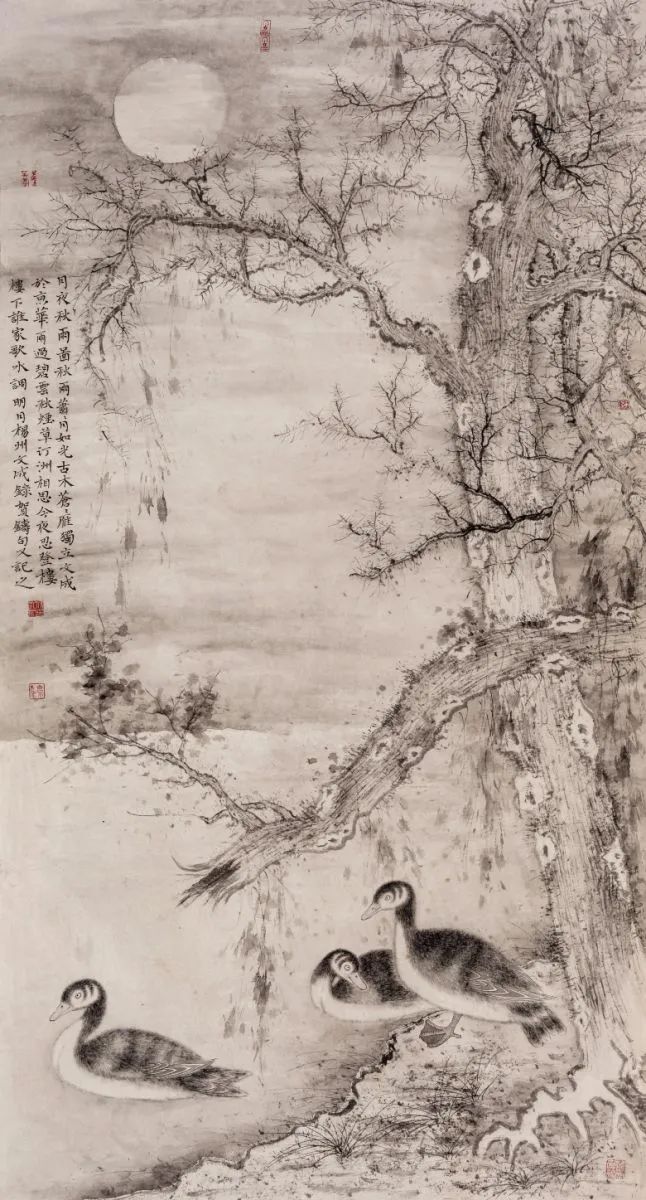 月夜秋雨啚秋雨蕭〻月如光古木蒼〻雁獨立文成
於京華雨過碧雲秋煙草汀洲相思今夜忍登樓
樓下誰家歌水調明月楊州文成錄賀鑄句又記之